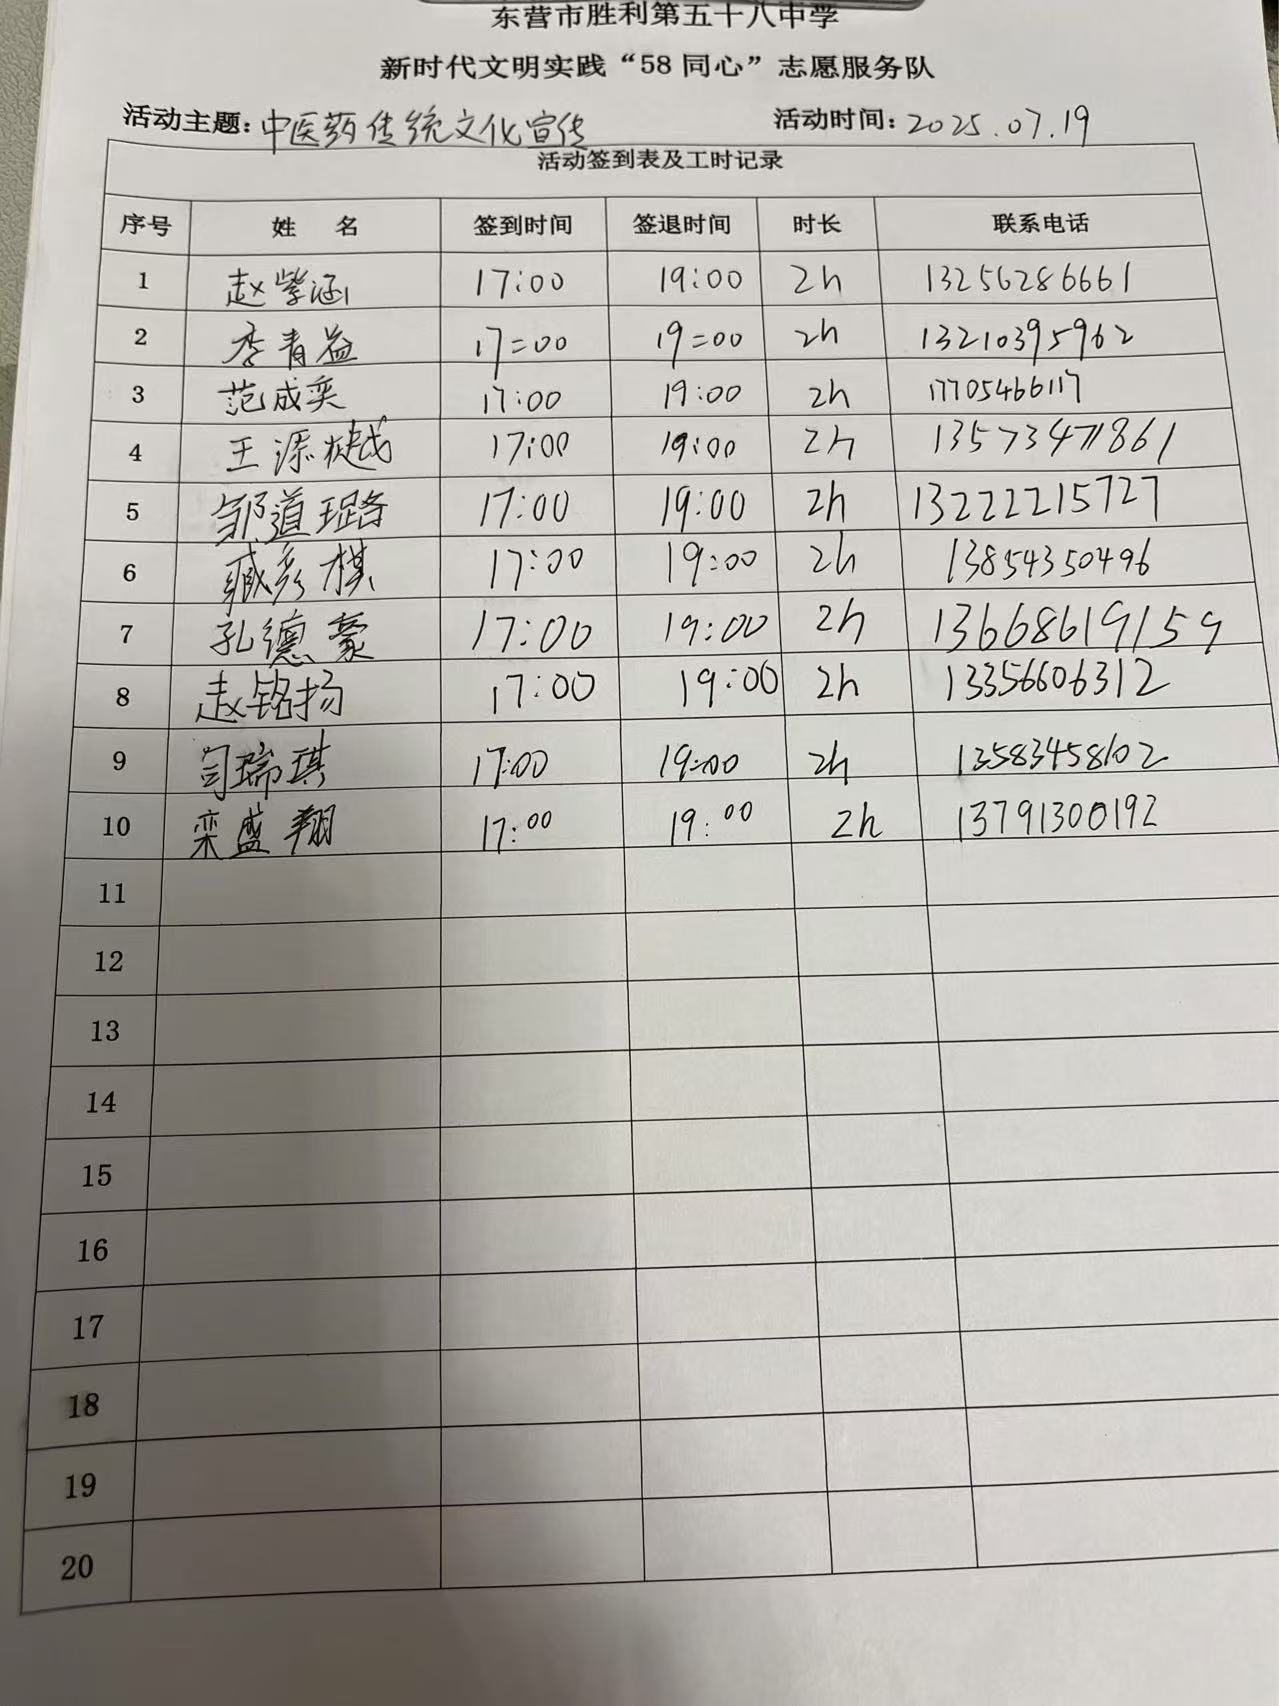 东营市胜利第五十八中学
新时代文明实践“58 同心”志愿服务队
活动主题：中医药传统文化宣传 活动时间：2025.07.19
活动签到表及工时记录
序号 姓 名 签到时间 签退时间 时长 联系电话
1 赵紫涵 17:00 19:00 2h 13256286661
2 李青益 17:00 19:00 2h 13210395962
3 范成奕 17:00 19:00 2h 17705466117
4 王源樾 17:00 19:00 2h 13573471861
5 邹道璐 17:00 19:00 2h 13222215727
6 臧彦棋 17:00 19:00 2h 13854350496
7 孔德蒙 17:00 19:00 2h 13668619159
8 赵铭扬 17:00 19:00 2h 13356606312
9 瑞琪 17:00 19:00 2h 13583458102
10 栾盛翔 17:00 19:00 2h 13791300192
11
12
13
14
15
16
17
18
19
20